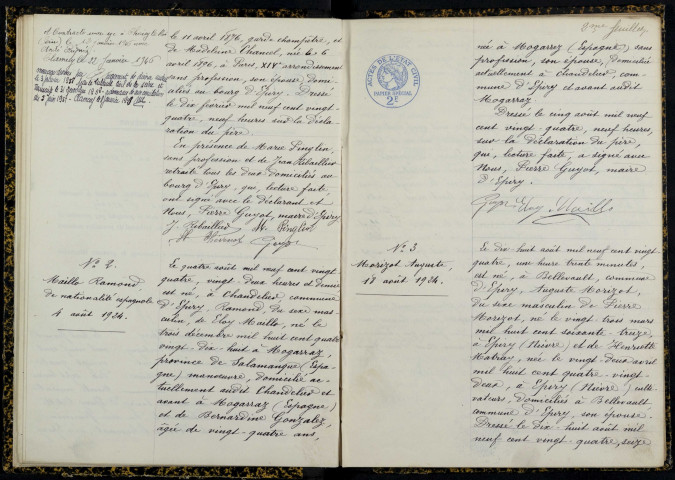 et Contracté mariage à
Clamecy le 22 Janvier 1946
le 11 avril 1876, garde champêtre, et
de Madeleine Chancel, née le 6
avril 1896, à Paris, XIVe arrondissement
sans profession, son épouse, domi-
ciliés au bourg d'Epiry. Dressé
le dix février mil neuf cent vingt-
quatre, neuf heures sur la décla-
ration du père.
En présence de Marie Pinglin,
sans profession et de Jean Rebailliard
retraité tous les deux domiciliés au
bourg d'Epiry, que, lecture faite
ont signé avec le déclarant et
Nous, Pierre Guyot, maire d'Epiry
M. Pinglin
Guyot
N° 2
Maillo Ramond
de nationalité espagnole
4 août 1924.
Le quatre août mil neuf cent vingt
quatre, vingt-deux heures et demie
est né, à Chandelier, commune
d'Epiry, Ramond, du sexe mas
culin, de Eloy Maillo, né le
trois décembre mil huit cent quatre
vingt-dix-huit à Mogarraz,
province de Salamanque (Espa
gne) manœuvre, domicilié ac-
tuellement audit Chandelier et
avant à Mogarraz (Espagne)
et de Bernardine Gonzalez,
âgée de vingt-quatre ans,
2me feuillet
ACTES DE L'ETAT CIVIL
PAPIER SPECIAL
2E
né à Mogarraz (Espagne) sans
profession, son épouse, domiciliée
actuellement à Chandelier, com-
mune d'Epiry et avant audit
Mogarraz
Dressé le cinq août mil neuf
cent vingt-quatre, neuf heures,
sur la déclaration du père,
que, lecture faite, a signé avec
Nous, Pierre Guyot, maire
d'Epiry.
Guyot Eloy Maillo
N° 3
Morizot Auguste,
17 août 1924.
Le dix-huit août mil neuf cent vingt
quatre, une heure vingt minutes,
est né, à Bellevault, commune
d'Epiry, Auguste Morizot,
du sexe masculin de Pierre
Morizot, né le vingt trois mars
mil huit cent soixante-treize,
à Epiry (Nièvre) et de Henriette
née le vingt-deux avril
mil huit cent quatre-vingt-
deux, à Epiry (Nièvre) culti-
vateurs, domiciliés à Bellevault
commune d'Epiry, son épouse.
Dressé le dix-huit août mil
neuf cent vingt-quatre, seize